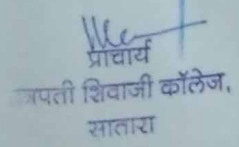 प्राचार्य
त्रपती शिवाजी कॉलेज,
सातारा